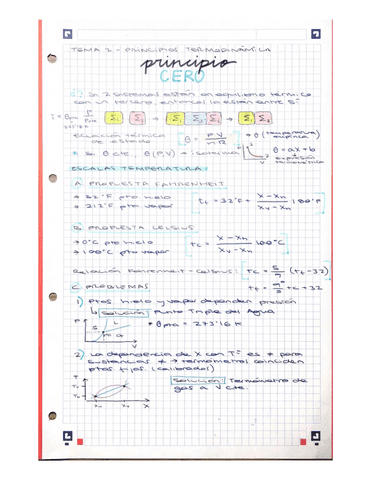 TEMA 2 - PRINCIPIOS TERMODINÁMICA
principio
CERO
Si 2 sistemas están en equilibrio térmico
con un tercero, entonces lo están entre sí
Σ₁ Σ₂ → Σ₁ Σ₃ Σ₂ → Σ₁ Σ₂
Ecuación térmica de estado
θ = PV / nR
→ θ (temperatura empírica)
* Si θ cte, θ(P,V) → isoterma
θ = aX + b
expresión termométrica
ESCALAS TEMPERATURA
A. PROPUESTA FAHRENHEIT
→ 32°F pto hielo
→ 212°F pto vapor
t_F = 32°F + (X - X_H) / (X_V - X_H) 180°F
B. PROPUESTA CELSIUS
→ 0°C pto hielo
→ 100°C pto vapor
t_C = (X - X_H) / (X_V - X_H) 100°C
Relación Fahrenheit - Celsius: t_C = 5/9 (t_F - 32)
t_F = 9/5 t_C + 32
C. PROBLEMAS
1) Ptos hielo y vapor dependen presión
↳ Solución: Punto Triple del Agua
* θ_PTA = 273'16 K
P S L V
2) La dependencia de X con Tª es ≠ para
sustancias ≠ → termómetros coinciden
ptos fijos (calibrados)
Solución: Termómetro de
gas a V cte.